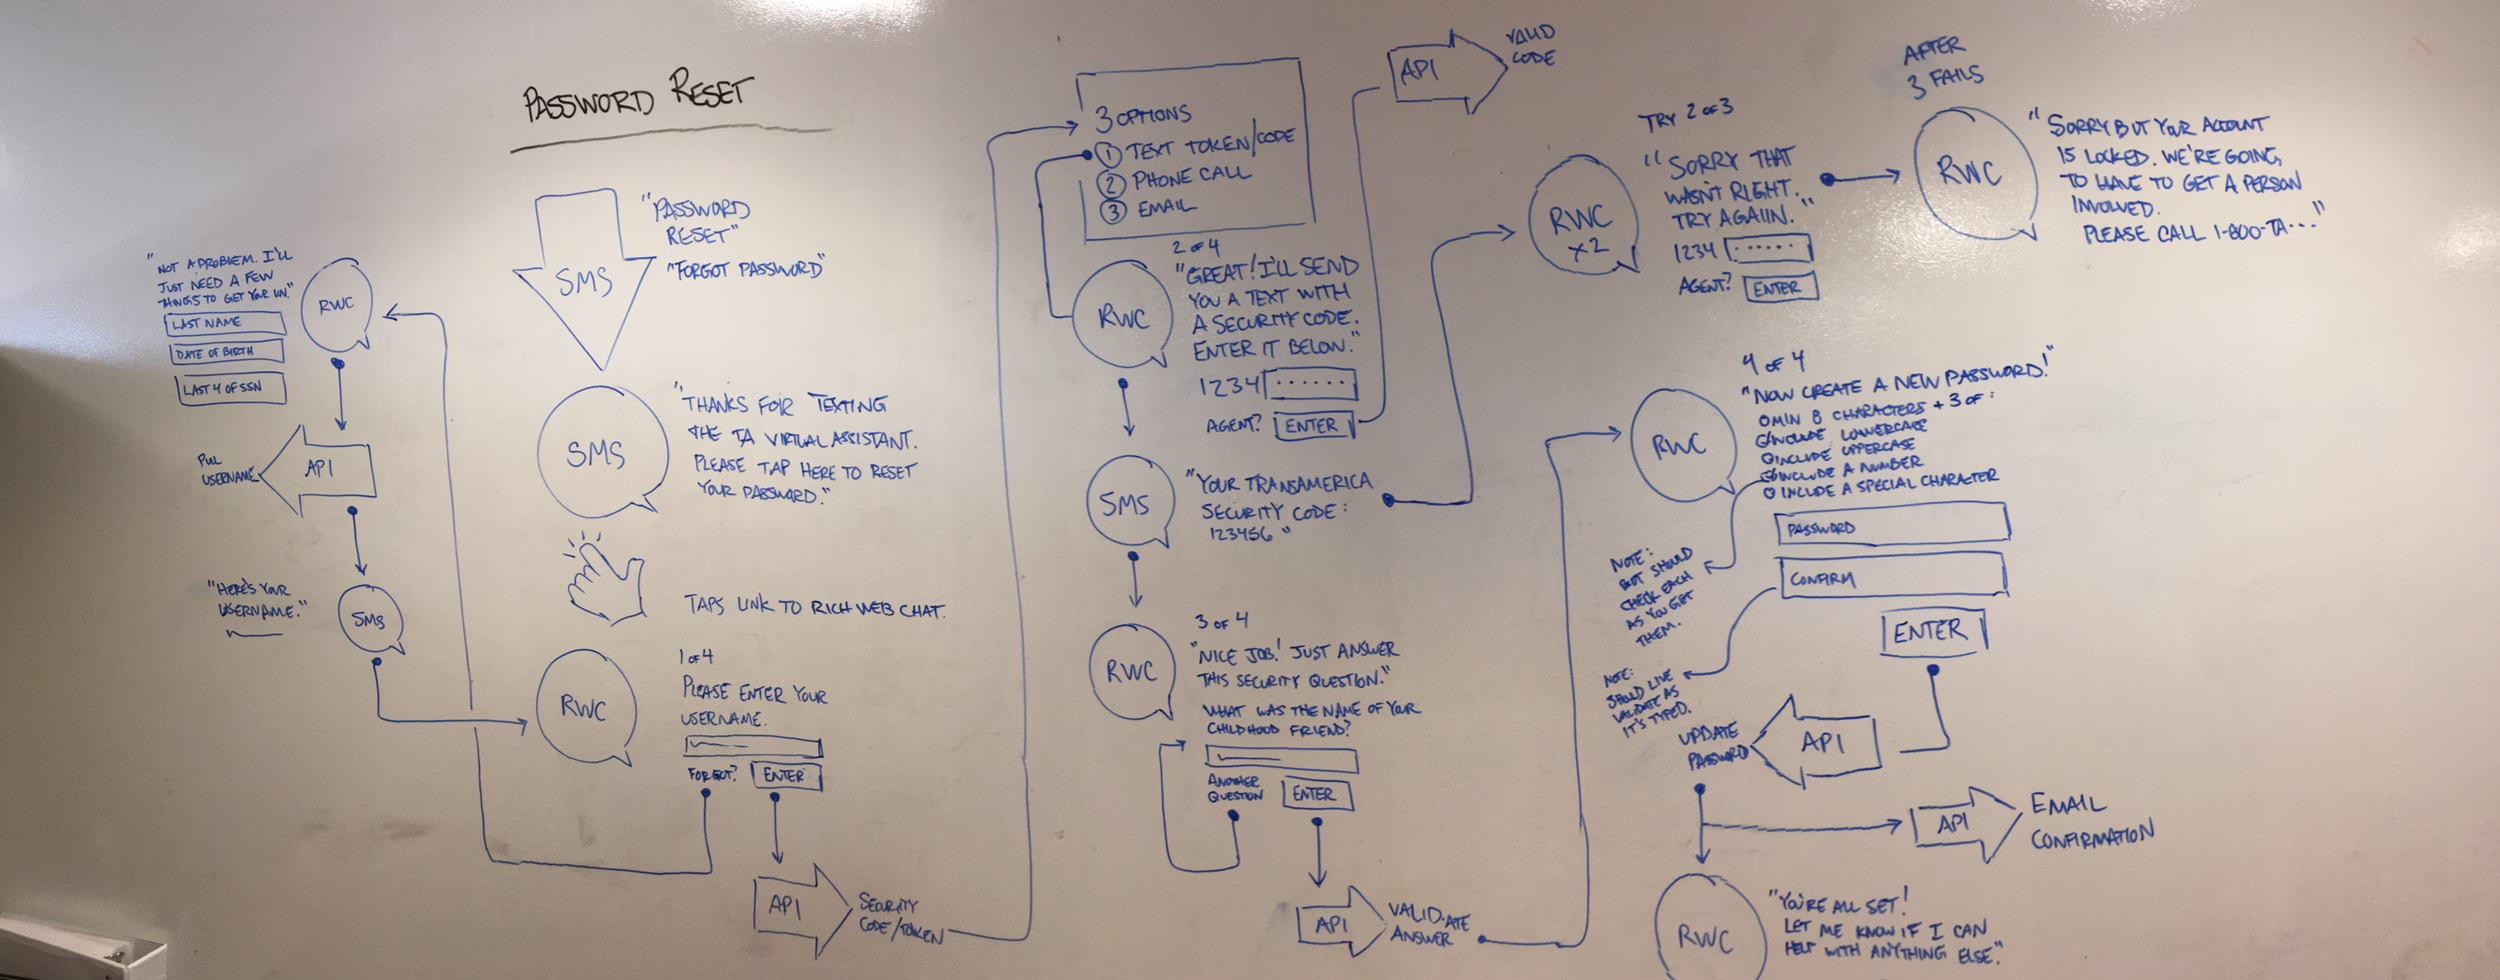 PASSWORD RESET
"NOT A PROBLEM. I'LL
JUST NEED A FEW
THINGS TO GET YOUR UN."
LAST NAME
DATE OF BIRTH
LAST 4 OF SSN
RWC
API
PULL
USERNAME
"HERE'S YOUR
USERNAME."
SMS
SMS
"PASSWORD
RESET"
"FORGOT PASSWORD"
SMS
"THANKS FOR TEXTING
THE TA VIRTUAL ASSISTANT.
PLEASE TAP HERE TO RESET
YOUR PASSWORD."
TAPS LINK TO RICH WEB CHAT.
RWC
1 OF 4
PLEASE ENTER YOUR
USERNAME.
FORGOT?
ENTER
API
SECURITY
CODE/TOKEN
3 OPTIONS
1 TEXT TOKEN/CODE
2 PHONE CALL
3 EMAIL
2 OF 4
RWC
"GREAT! I'LL SEND
YOU A TEXT WITH
A SECURITY CODE.
ENTER IT BELOW."
1234 ......
AGENT? ENTER
API
VALID
CODE
SMS
"YOUR TRANSAMERICA
SECURITY CODE:
123456"
RWC
3 OF 4
"NICE JOB! JUST ANSWER
THIS SECURITY QUESTION."
WHAT WAS THE NAME OF YOUR
CHILDHOOD FRIEND?
ANOTHER
QUESTION
ENTER
API
VALIDATE
ANSWER
TRY 2 OF 3
RWC
x2
"SORRY THAT
WASN'T RIGHT.
TRY AGAIIN."
1234 ......
AGENT? ENTER
AFTER
3 FAILS
RWC
"SORRY BUT YOUR ACCOUNT
IS LOCKED. WE'RE GOING
TO HAVE TO GET A PERSON
INVOLVED.
PLEASE CALL 1-800-TA..."
4 OF 4
RWC
"NOW CREATE A NEW PASSWORD!"
O MIN 8 CHARACTERS + 3 OF:
INCLUDE LOWERCASE
O INCLUDE UPPERCASE
INCLUDE A NUMBER
O INCLUDE A SPECIAL CHARACTER
PASSWORD
CONFIRM
ENTER
NOTE:
BOT SHOULD
CHECK EACH
AS YOU GET
THEM.
NOTE:
SHOULD LIVE
VALIDATE AS
IT'S TYPED.
API
UPDATE
PASSWORD
API
EMAIL
CONFIRMATION
RWC
"YOU'RE ALL SET!
LET ME KNOW IF I CAN
HELP WITH ANYTHING ELSE."